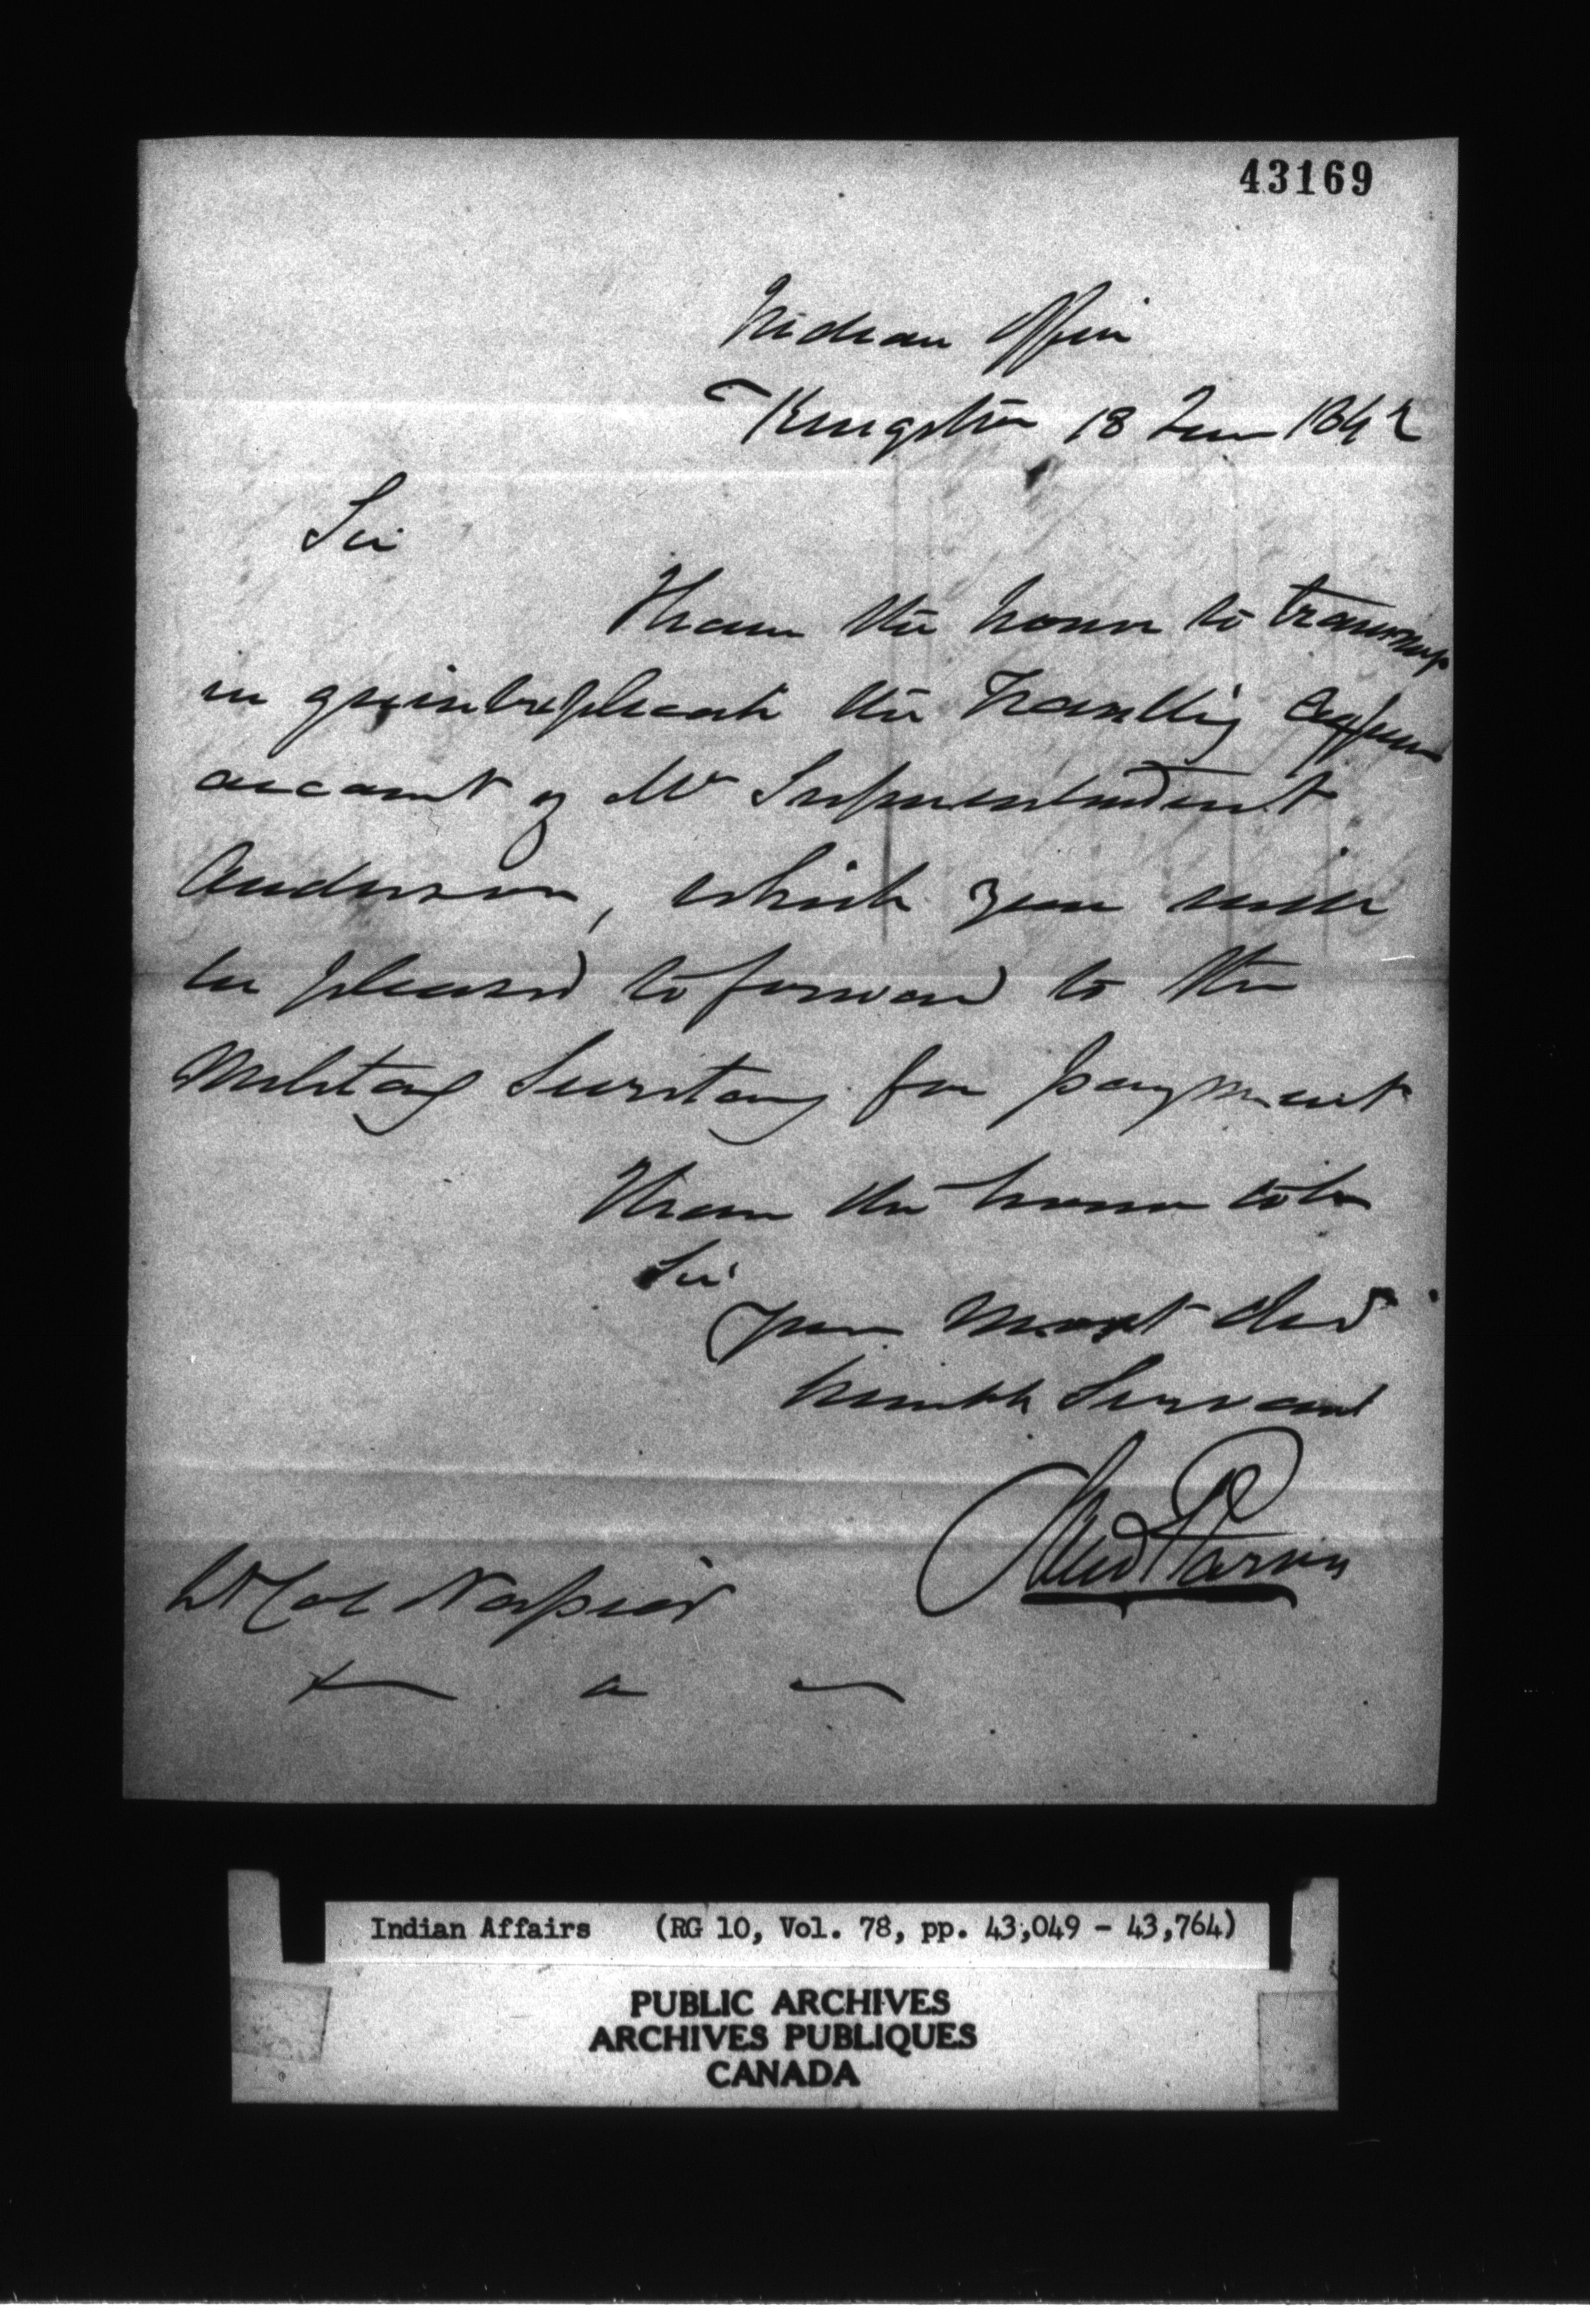 43169
Indian Office
Kingston 18 June 1842
Sir
I have the honor to transmit
in quintuplicate the travelling expense
account of Mr Superintendent
Anderson, which you will
be pleased to forward to the
Military Secretary for payment
I have the honor to be
Sir
Your most obed
humble Servant
Lt Col Napier
Indian Affairs (RG 10, Vol. 78, pp. 43,049 - 43,764)
PUBLIC ARCHIVES
ARCHIVES PUBLIQUES
CANADA